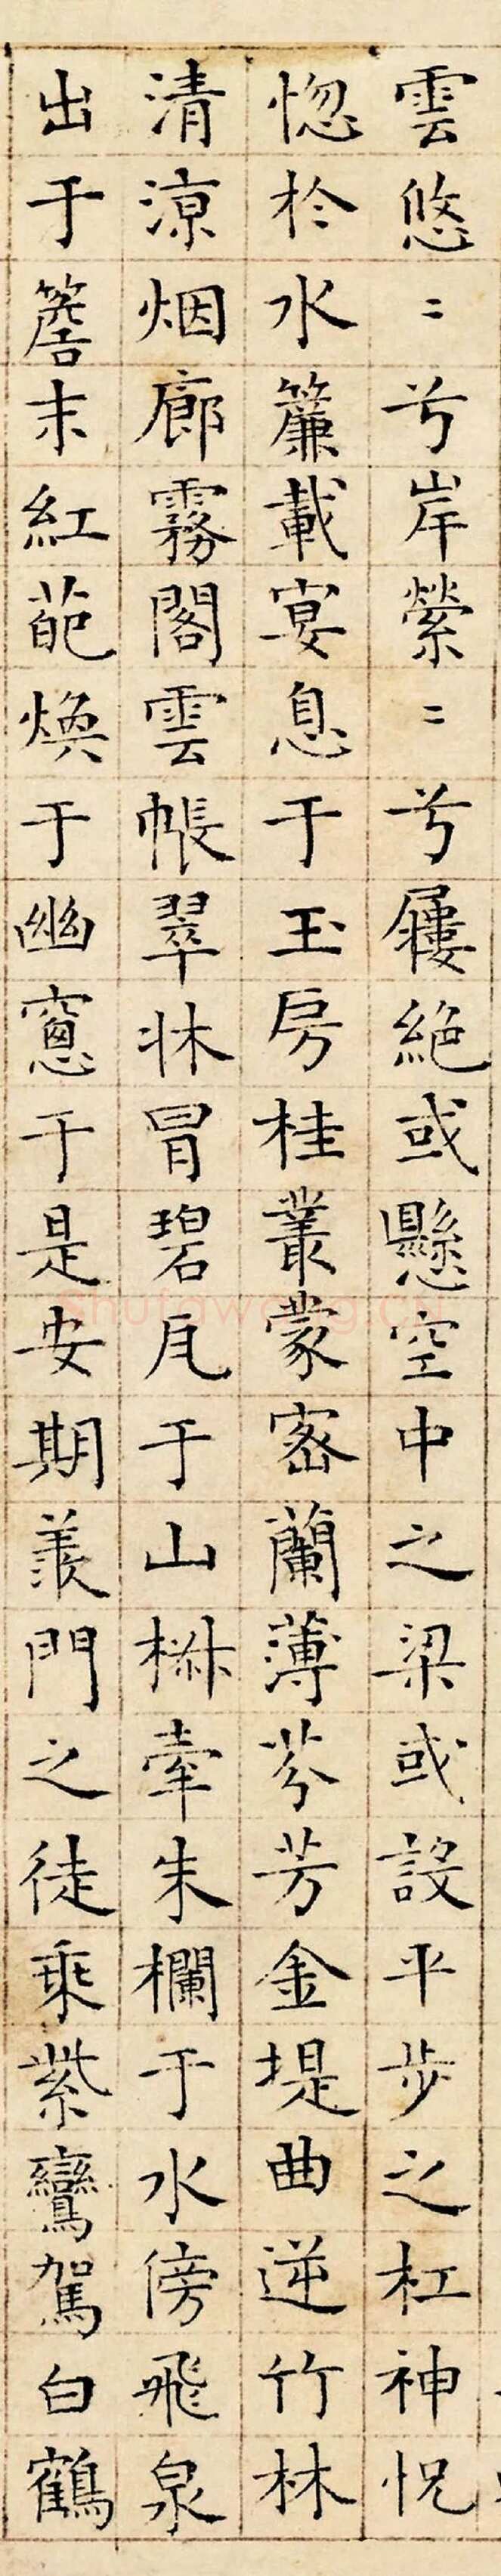 雲悠〻兮岸縈〻兮屨絕或懸空中之梁或設平步之杠神怳
惚於水簾載宴息于玉房桂叢蒙密蘭薄芬芳金堤曲逆竹林
清涼烟廊霧閣雲帳翠牀冐碧瓦于山牀牽朱欄于水傍飛泉
出于簷末紅葩煥于幽窻于是安期羨門之徒乘紫鸞駕白鶴
Shufawang.cn